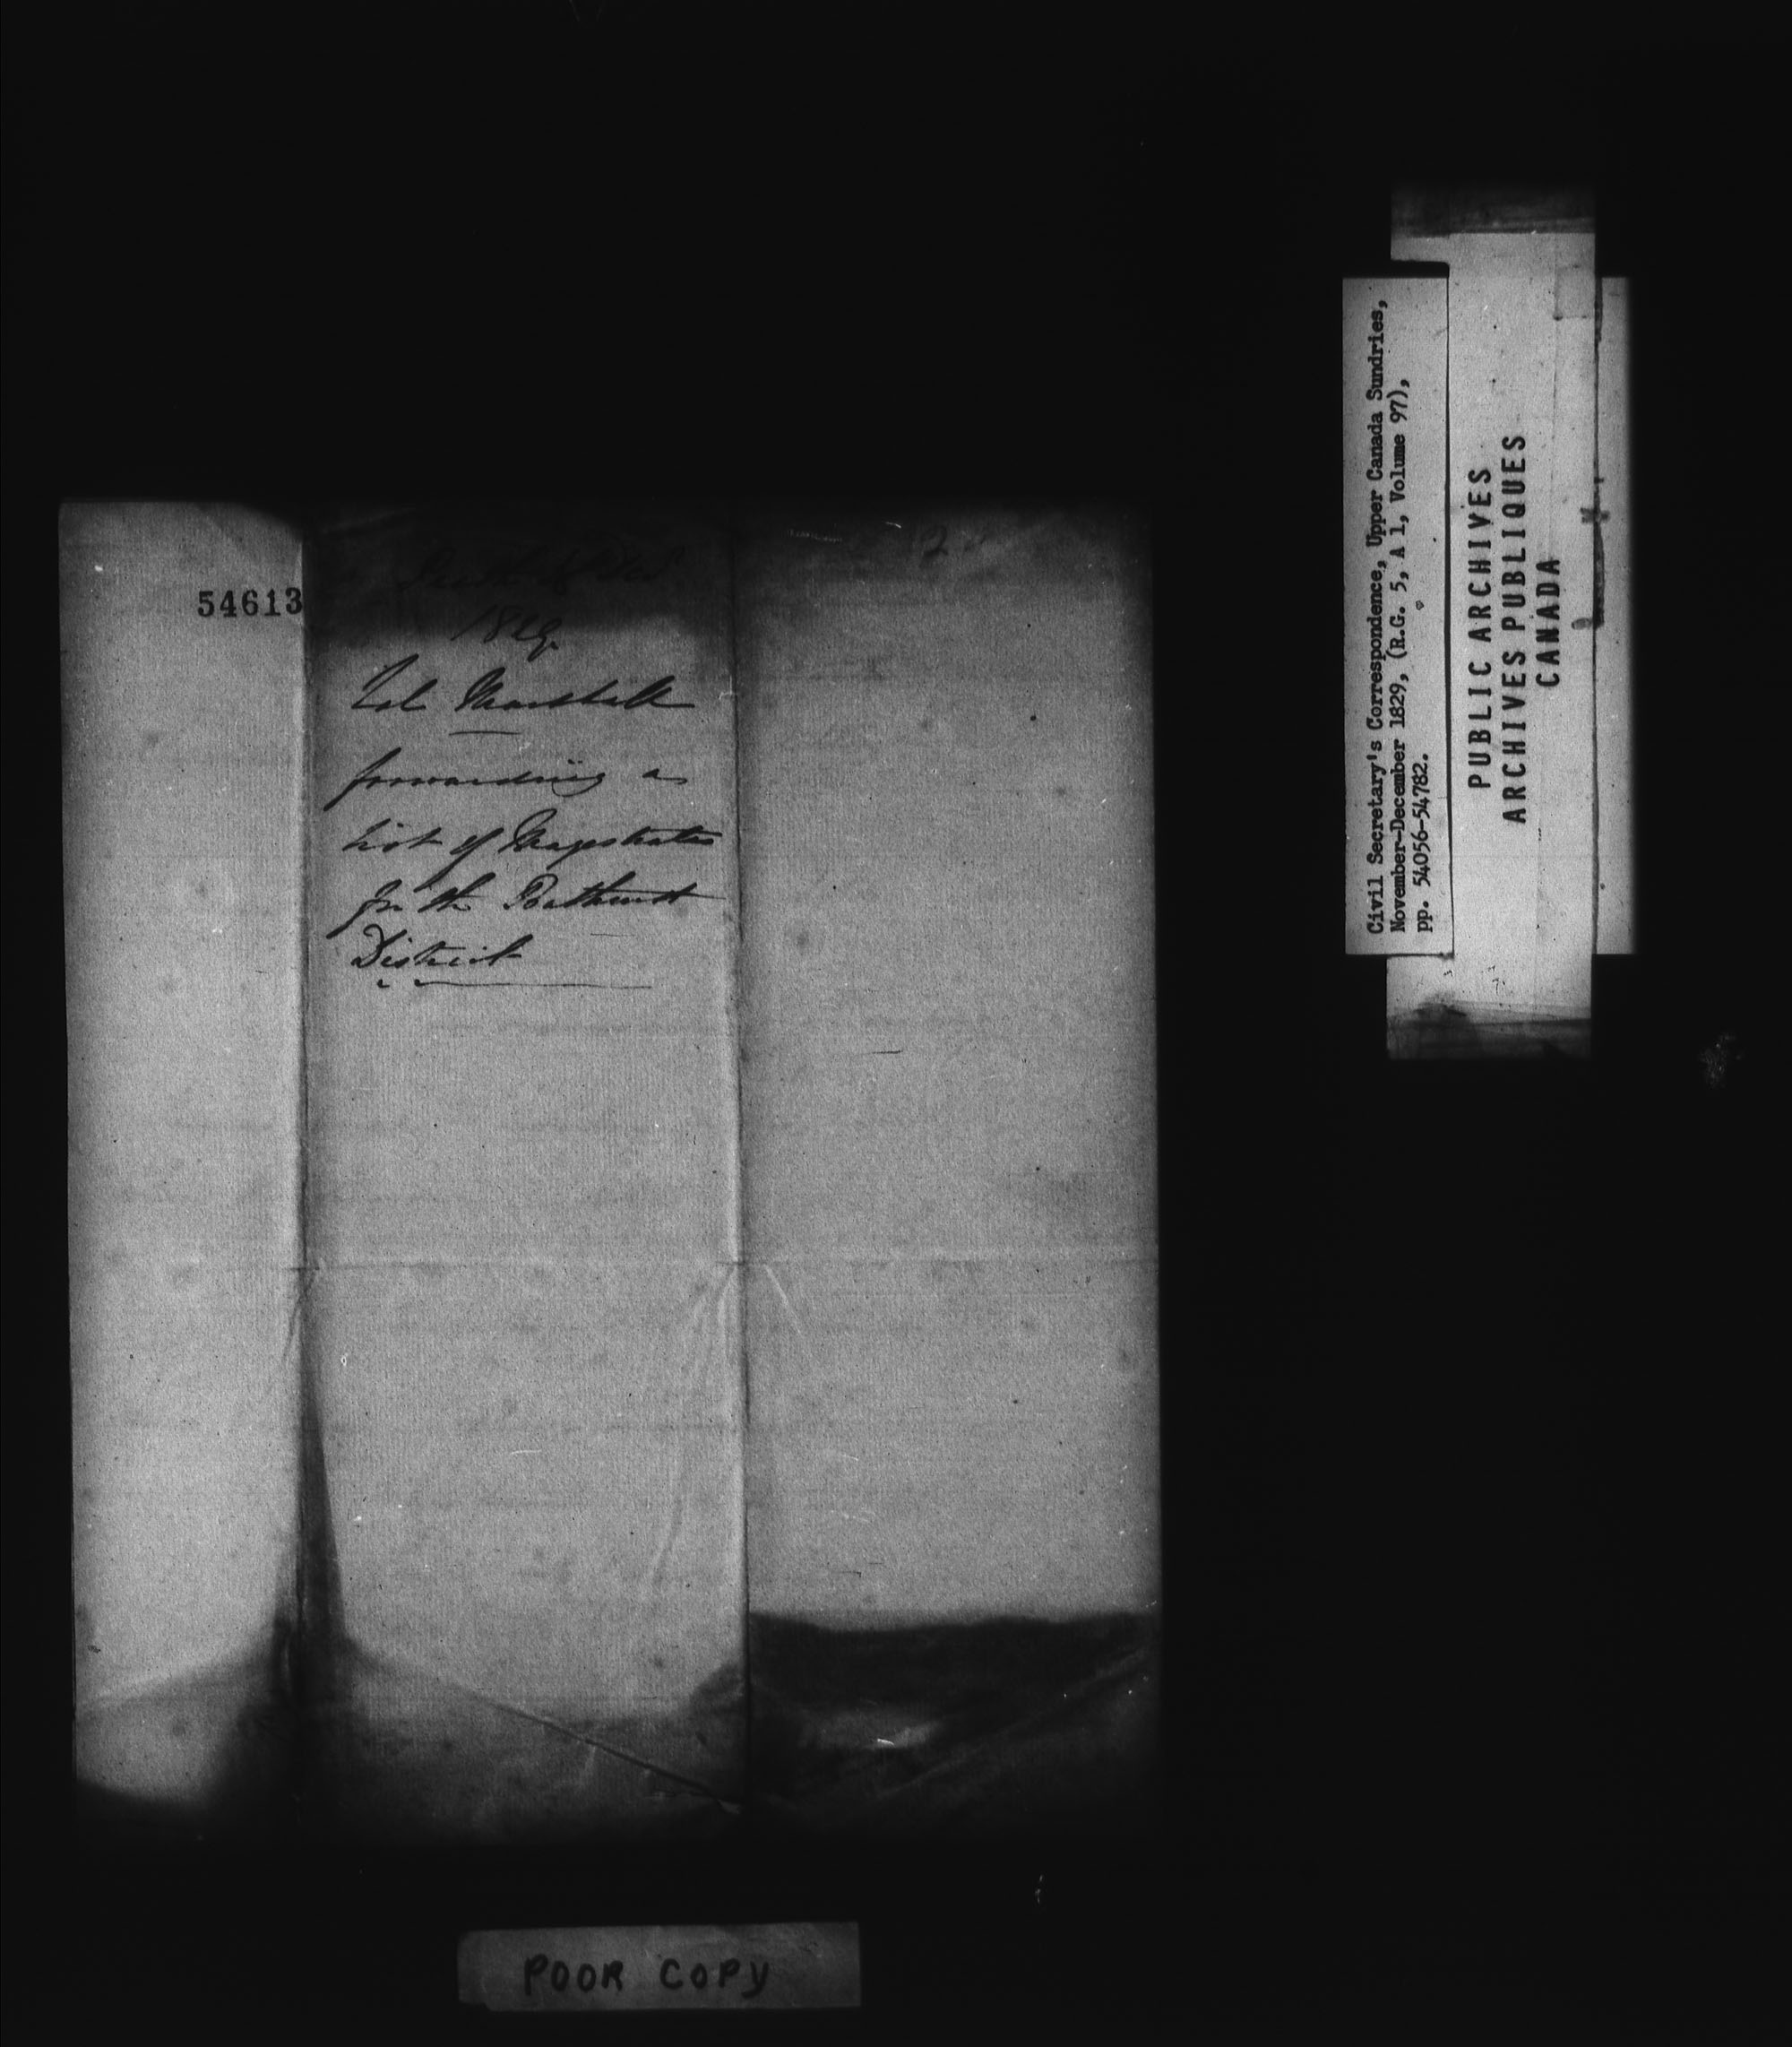 54613
1829
Col Marshall
forwarding a
List of Magistrates
In the Bathurst
District
Civil Secretary's Correspondence, Upper Canada Sundries,
November-December 1829, (R.G. 5, A 1, Volume 97),
pp. 54056-54782.
PUBLIC ARCHIVES
ARCHIVES PUBLIQUES
CANADA
POOR COPY